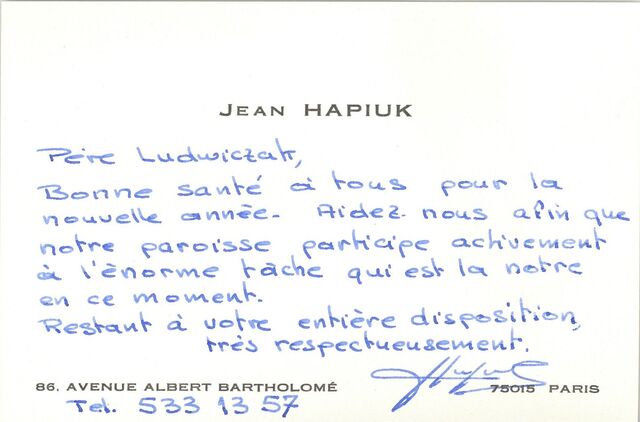 JEAN HAPIUK
Père Ludwiczak,
Bonne santé à tous pour la
nouvelle année. Aidez-nous afin que
notre paroisse participe activement
à l'énorme tâche qui est la notre
en ce moment.
Restant à votre entière disposition,
très respectueusement.
86, AVENUE ALBERT BARTHOLOMÉ 75015 PARIS
Tel. 533 13 57